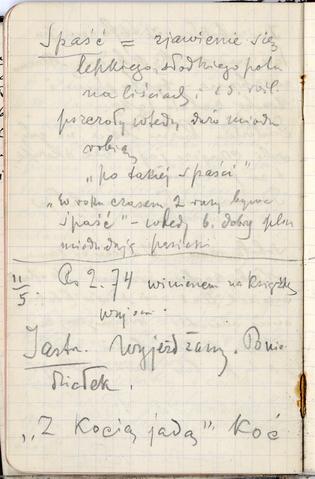 Spaść = zjawienie się
lepkiego, słodkiego potu
na liściach i
pszczoły wtedy dużo miodu
robią
"po takiej spaści"
"W roku czasem 2 razy bywa
spaść" - wtedy b. dobry plon
miodu dają pasieki
11/5. 2.74 winienem na książkę
Jastr. Wyjeżdżamy. Ponie-
działek.
"Z Kocią jadą" Koć